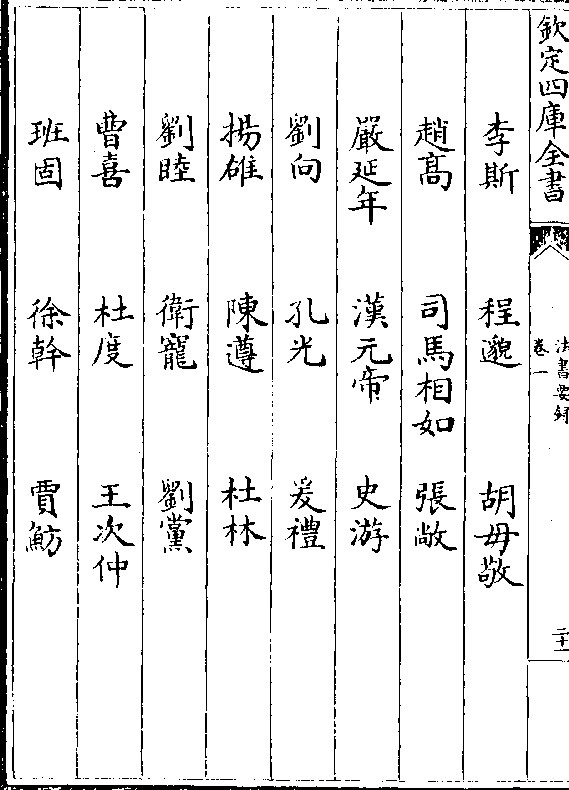 欽定四庫全書
法書要錄
卷一
二十一
李斯 程邈 胡毋敬
趙高 司馬相如 張敞
嚴延年 漢元帝 史游
劉向 孔光 爰禮
揚雄 陳遵 杜林
劉睦 衛寵 劉黨
曹喜 杜度 王次仲
班固 徐幹 賈魴